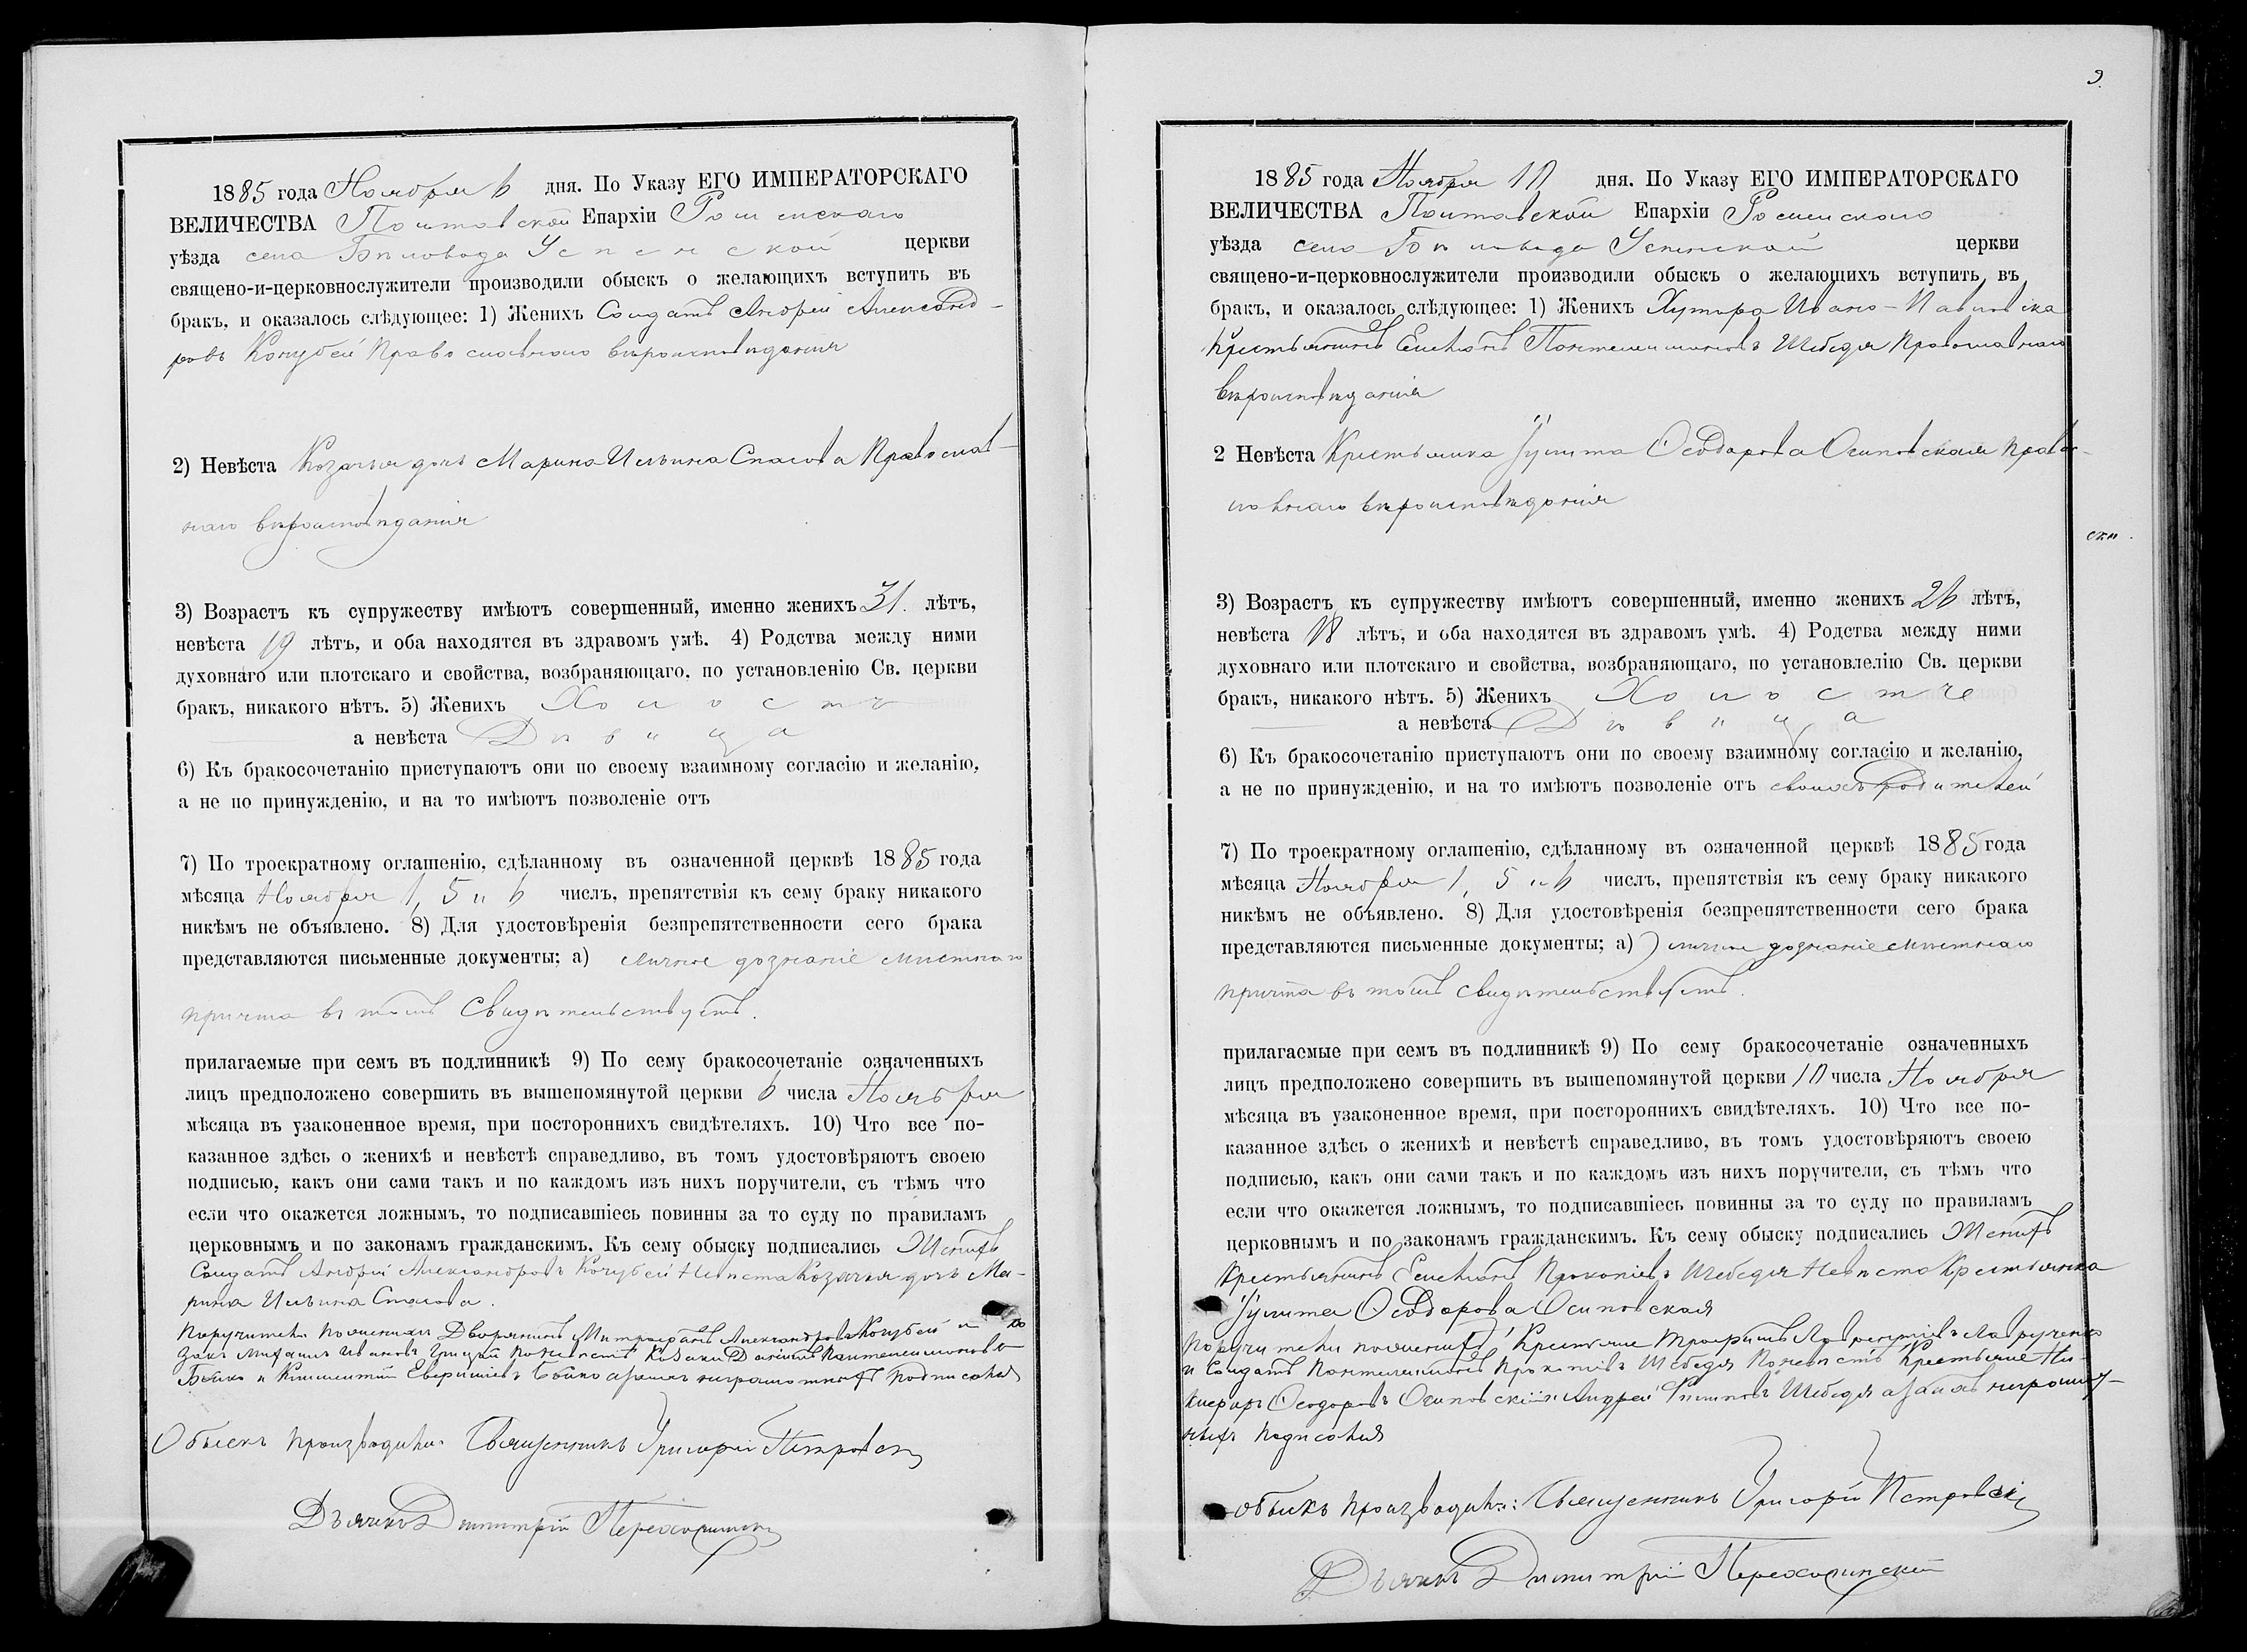 1885 года Ноября 6 дня. По Указу ЕГО ИМПЕРАТОРСКАГО
ВЕЛИЧЕСТВА Полтавской Епархіи Роменскаго
уѣзда села Успенской церкви
священо-и-церковнослужители производили обыскъ о желающихъ вступить въ
бракъ, и оказалось слѣдующее: 1) Женихъ Солдатъ Андрей Александ-
ровъ Кочубей Православнаго вѣроисповѣданія
2) Невѣста Козачья дочь Марина Ильина Спасова Православ-
наго вѣроисповѣданія
3) Возрастъ къ супружеству имѣютъ совершенный, именно женихъ 31. лѣтъ,
невѣста 19 лѣтъ, и оба находятся въ здравомъ умѣ. 4) Родства между ними
духовнаго или плотскаго и свойства, возбраняющаго, по установленію Св. церкви
бракъ, никакого нѣтъ. 5) Женихъ Холостъ
а невѣста Дѣвица
6) Къ бракосочетанію приступаютъ они по своему взаимному согласію и желанію,
а не по принужденію, и на то имѣютъ позволеніе отъ
7) По троекратному оглашенію, сдѣланному въ означенной церквѣ 1885 года
мѣсяца Ноября 1, 5 и 6 числъ, препятствія къ сему браку никакого
никѣмъ не объявлено. 8) Для удостовѣренія безпрепятственности сего брака
представляются письменные документы; а) личное дознаніе мѣстнаго
причта въ томъ свидѣтельствуетъ.
прилагаемые при семъ въ подлинникѣ 9) По сему бракосочетаніе означенныхъ
лицъ предположено совершить въ вышепомянутой церкви 6 числа Ноября
мѣсяца въ узаконенное время, при постороннихъ свидѣтеляхъ. 10) Что все по-
казанное здѣсь о женихѣ и невѣстѣ справедливо, въ томъ удостовѣряютъ своею
подписью, какъ они сами такъ и по каждомъ изъ нихъ поручители, съ тѣмъ что
если что окажется ложнымъ, то подписавшіесь повинны за то суду по правиламъ
церковнымъ и по законамъ гражданскимъ. Къ сему обыску подписались Женихъ
Солдатъ Андрей Александровъ Кочубей Невѣста Козачья дочь Ма-
рина Ильина Спасова.
Поручители по женихѣ Дворянинъ Митрофанъ Александровъ Кочубей и
Михаилъ Ивановъ по невѣстѣ Козаки Даніилъ Пантелеимоновъ
Бойко и Климентій Бойко а за нихъ неграмотныхъ подписался
Обыскъ производили: Священникъ Григорій Петровскій
Дьячокъ Димитрій
1885 года Ноября 10 дня. По Указу ЕГО ИМПЕРАТОРСКАГО
ВЕЛИЧЕСТВА Полтавской Епархіи Роменскаго
уѣзда села Успенской церкви
священо-и-церковнослужители производили обыскъ о желающихъ вступить въ
бракъ, и оказалось слѣдующее: 1) Женихъ Хутора Ивано-Павловска
Крестьянинъ Емеліанъ Пантелеимоновъ Шебедя Православнаго
вѣроисповѣданія
2 Невѣста Крестьянка Іулита Ѳеодорова Осиповская Право-
славнаго вѣроисповѣданія
3) Возрастъ къ супружеству имѣютъ совершенный, именно женихъ 26 лѣтъ,
невѣста 18 лѣтъ, и оба находятся въ здравомъ умѣ. 4) Родства между ними
духовнаго или плотскаго и свойства, возбраняющаго, по установлелію Св. церкви
бракъ, никакого нѣтъ. 5) Женихъ Холостъ
а невѣста Дѣвица
6) Къ бракосочетанію приступаютъ они по своему взаимному согласію и желанію,
а не по принужденію, и на то имѣютъ позволеніе отъ своихъ родителей
7) По троекратному оглашенію, сдѣланному въ означенной церквѣ 1885 года
мѣсяца Ноября 1, 5 и 6 числъ, препятствія къ сему браку никакого
никѣмъ не объявлено. 8) Для удостовѣренія безпрепятственности сего брака
представляются письменные документы; а) личное дознаніе мѣстнаго
причта въ томъ свидѣтельствуетъ.
прилагаемые при семъ въ подлинникѣ 9) По сему бракосочетаніе означенныхъ
лицъ предположено совершить въ вышепомянутой церкви 10 числа Ноября
мѣсяца въ узаконенное время, при постороннихъ свидѣтеляхъ. 10) Что все по-
казанное здѣсь о женихѣ и невѣстѣ справедливо, въ томъ удостовѣряютъ своею
подписью, какъ они сами такъ и по каждомъ изъ нихъ поручители, съ тѣмъ что
если что окажется ложнымъ, то подписавшіесь повинны за то суду по правиламъ
церковнымъ и по законамъ гражданскимъ. Къ сему обыску подписались Женихъ
Крестьянинъ Емеліанъ Прокопіевъ Шебедя Невѣста Крестьянка
Іулита Ѳеодорова Осиповская
Поручители по женихѣ Крестьяне Трофимъ Лаврентіевъ Лаврученко
и Солдатъ Пантелеимонъ Прокопіевъ Шебедя По невѣстѣ Крестьяне Ни-
кифоръ Ѳеодоровъ Осиповскій и Андрей Филиповъ Шебедя а за нихъ неграмот-
ныхъ подписался
Обыскъ производили: Священникъ Григорій Петровскій
Дьячокъ Димитрій